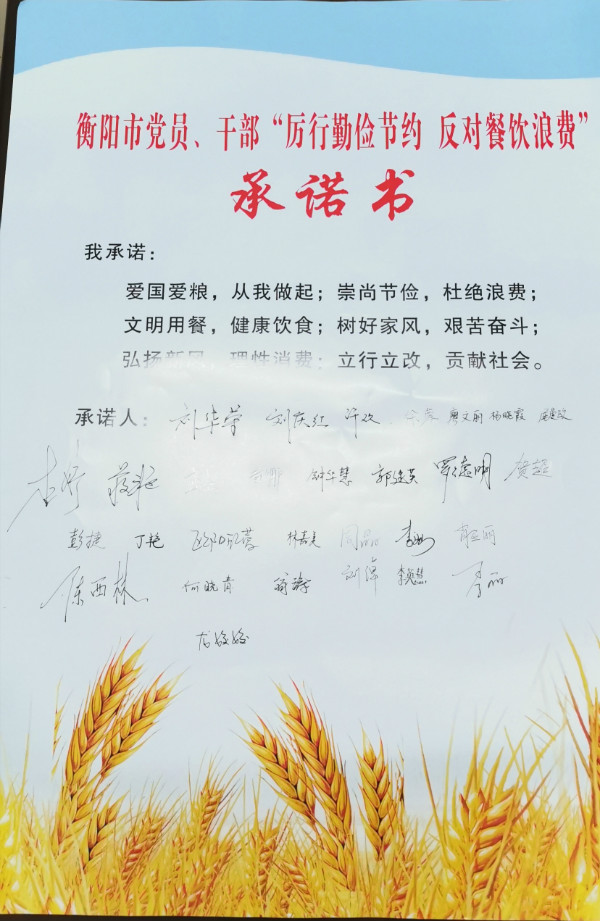 衡阳市党员、干部“厉行勤俭节约 反对餐饮浪费”
承诺书
我承诺：
爱国爱粮，从我做起；崇尚节俭，杜绝浪费；
文明用餐，健康饮食；树好家风，艰苦奋斗；
弘扬新风，理性消费；立行立改，贡献社会。
承诺人：刘华荣 刘庆红 唐文丽 杨晓霞
钟华慧 郭建英 罗德明
彭捷 丁艳 周晶
陈西林 何晓青 刘伟 李丽